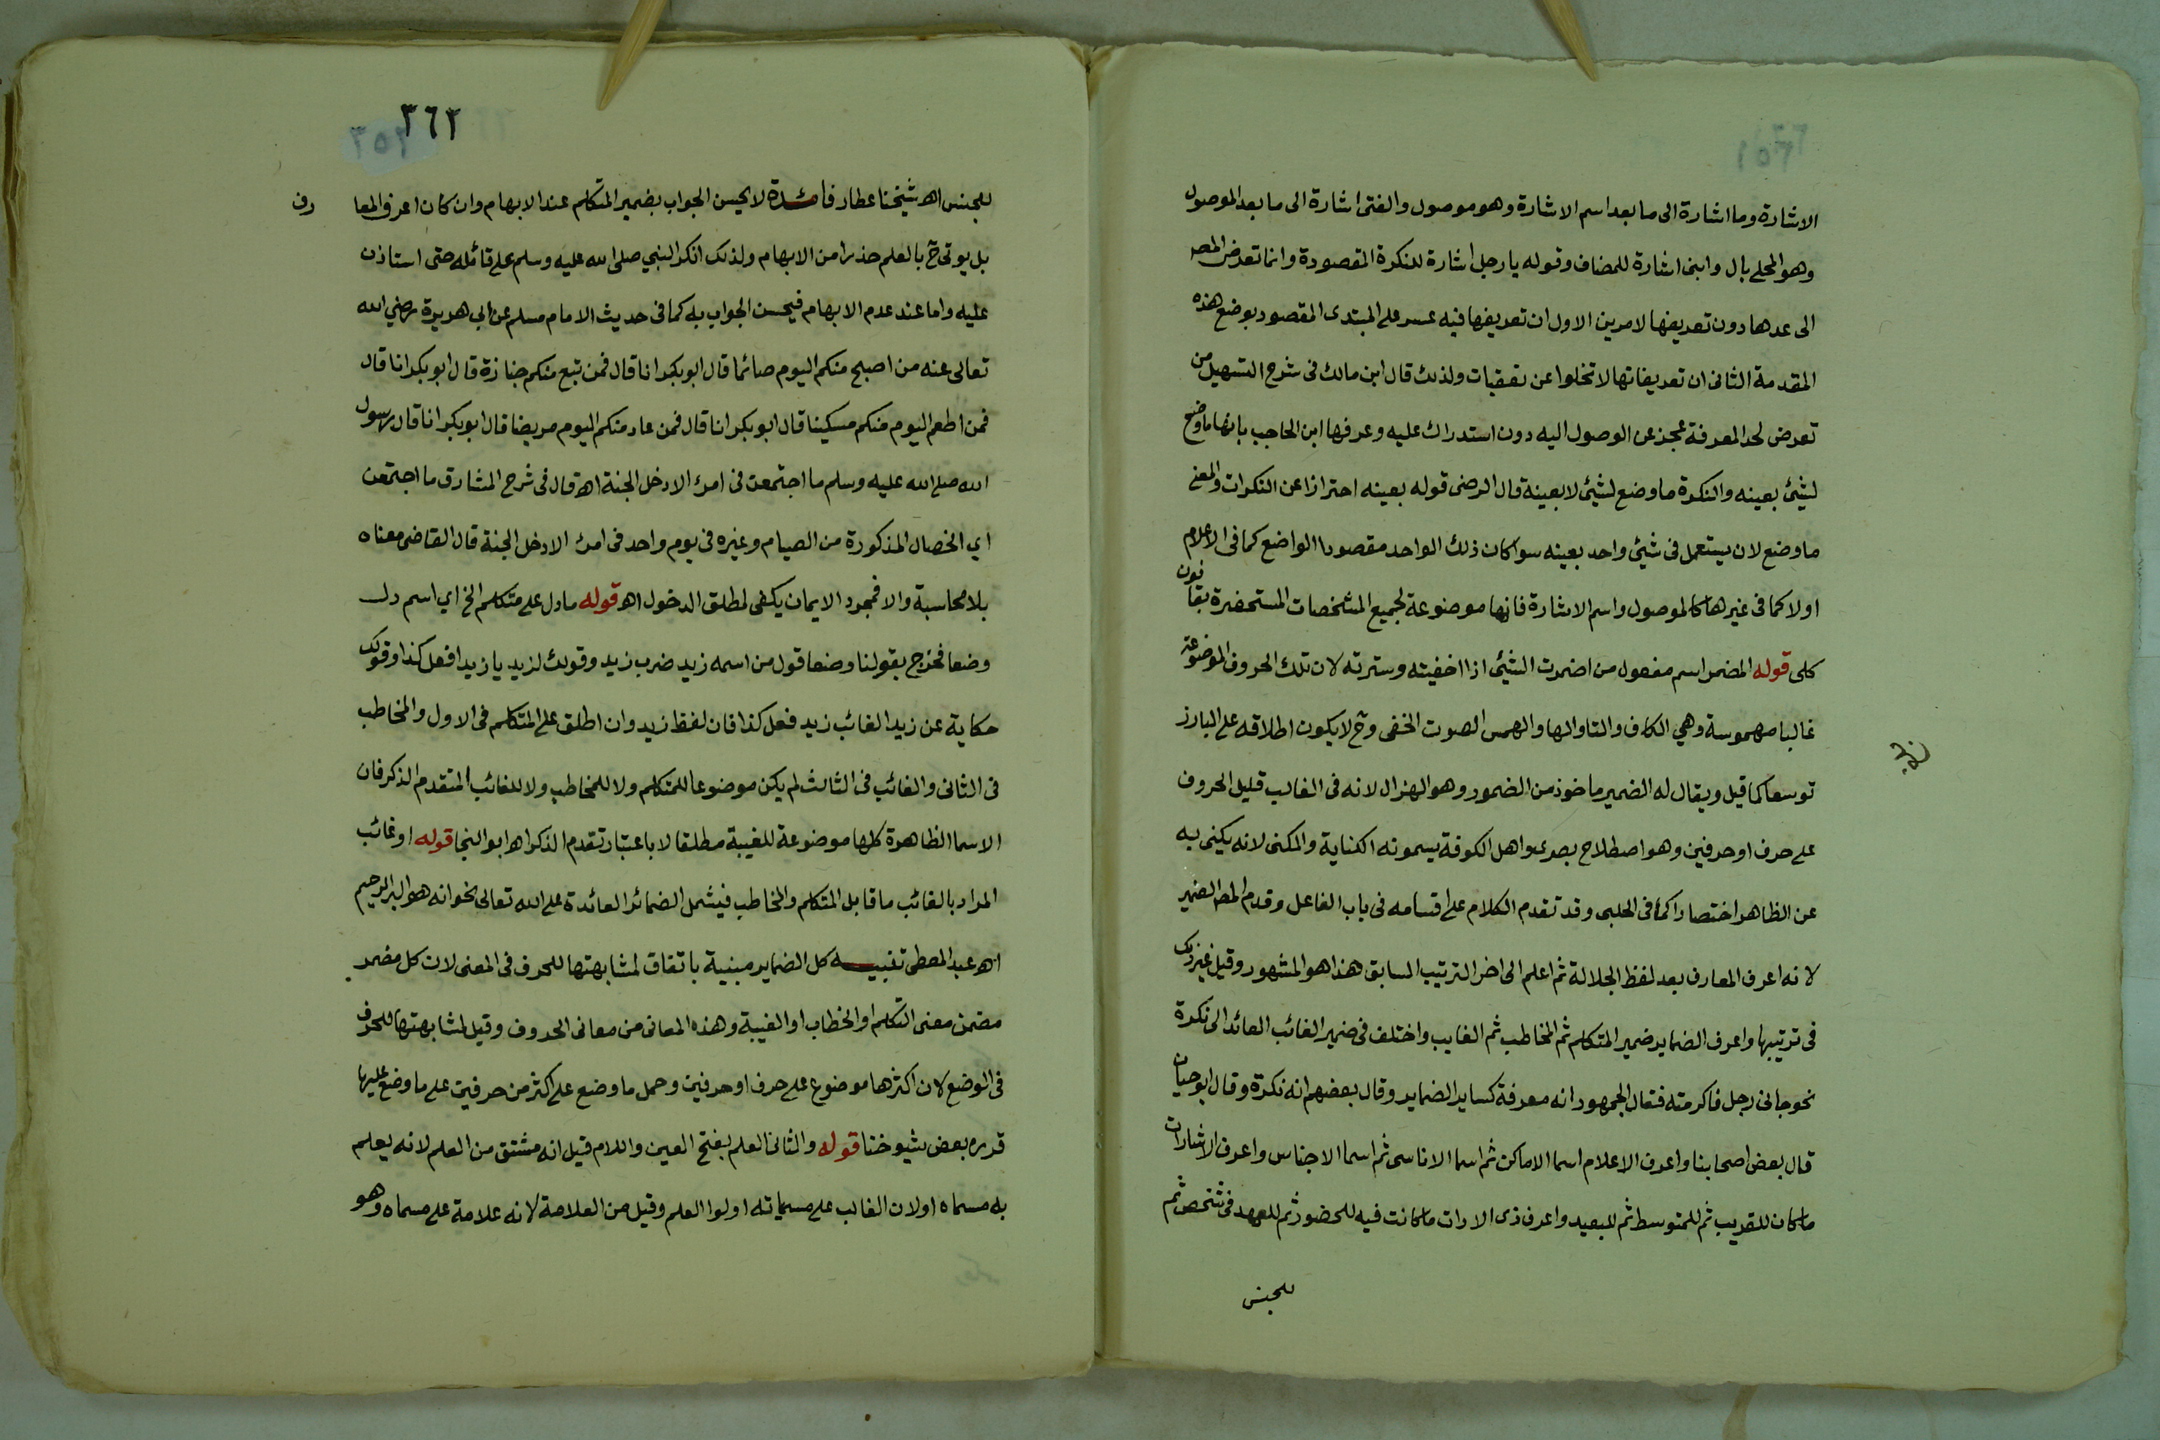 الاشارة وما اشارة الى ما بعد اسم الاشارة وهو موصول والفتى اشارة الى ما بعد الموصول
وهو المحلى بال وابنى اشارة للمضاف وقوله يا رجل اشارة للنكرة المقصودة وانما تعرض المص
الى عدها دون تعريفها لامرين الاول ان تعريفها فيه عسر على المبتدى المقصود بوضع هذه
المقدمة الثانى ان تعريفاتها لا تخلوا عن تعقبات ولذلك قال ابن مالك فى شرح التسهيل من
تعرض لحد المعرفة عجز عن الوصول اليه دون استدراك عليه وعرفها ابن الحاجب بانها ما وضع
لشيئ بعينه والنكرة ما وضع لشيئ لا بعينه قال الرضى قوله بعينه احترازا عن النكرات والمعنى
ما وضع لان يستعمل فى شيئ واحد بعينه سوا كان ذلك الواحد مقصود الواضع كما فى الاعلام
اولا كما فى غيرها كالموصول واسم الاشارة فانها موضوعة لجميع المشخصات المستحضرة بقانون
كلى قوله المضمر اسم مفعول من اضمرت الشيئ اذا اخفيته وسترته لان تلك الحروف الموضوعة
غالبا مهموسة وهي الكاف والتا والها والهمس الصوت الخفى وح لا يكون اطلاقه على البارز
توسعا كما قيل ويقال له الضمير ماخوذ من الضمور وهو الهزال لانه فى الغالب قليل الحروف
على حرف او حرفين وهو اصطلاح بصرى واهل الكوفة يسمونه الكناية والمكنى لانه يكنى به
عن الظاهر اختصارا كما فى الحلبى وقد تقدم الكلام على اقسامه فى باب الفاعل وقدم المص الضمير
لانه اعرف المعارف بعد لفظ الجلالة ثم اعلم الى اخر الترتيب السابق هذا هو المشهور وقيل غير ذلك
فى ترتيبها واعرف الضماير ضمير المتكلم ثم المخاطب ثم الغايب واختلف فى ضمير الغائب العائد الى نكرة
نحو جانى رجل فاكرمته فقال الجمهور انه معرفة كساير الضماير وقال بعضهم انه نكرة وقال ابو حيان
قال بعض اصحابنا واعرف الاعلام اسما الاماكن ثم اسما الاناسى ثم اسما الاجناس واعرف الاشارات
ماكان للقريب ثم للمتوسط ثم للبعيد واعرف ذى الادات ماكانت فيه للحضور ثم للعهد فى شخص ثم
للجنس
٣٦٢
٣٥٢
للجنس اهـ شيخنا عطار فائدة لا يحسن الجواب بضمير المتكلم عند الابهام وان كان اعرف المعارف
بل يوتى ح بالعلم حذرا من الابهام ولذلك انكر النبي صلى الله عليه وسلم على قائله حتى استاذن
عليه واما عند عدم الابهام فيحسن الجواب به كما فى حديث الامام مسلم عن ابي هريرة رضي الله
تعالى عنه من اصبح منكم اليوم صائما قال ابو بكر انا قال فمن تبع منكم جنازة قال ابو بكر انا قال
فمن اطعم اليوم منكم مسكينا قال ابو بكر انا قال فمن عاد منكم اليوم مريضا قال ابو بكر انا قال رسول
الله صلى الله عليه وسلم ما اجتمعن فى امرئ الا دخل الجنة اهـ قال فى شرح المشارق ما اجتمعن
اي الخصال المذكورة من الصيام وغيره فى يوم واحد فى امرئ الا دخل الجنة قال القاضى معناه
بلا محاسبة والا فمجرد الايمان يكفى لمطلق الدخول اهـ قوله ما دل على متكلم الخ اي اسم دل
وضعا فخرج بقولنا وضعا قول من اسمه زيد ضرب زيد وقولك لزيد يا زيد افعل كذا وقولك
حكاية عن زيد الغائب زيد فعل كذا فان لفظ زيد وان اطلق على المتكلم فى الاول والمخاطب
فى الثانى والغائب فى الثالث لم يكن موضوعا للمتكلم ولا للمخاطب ولا للغائب المتقدم الذكر فان
الاسما الظاهرة كلها موضوعة للغيبة مطلقا لا باعتبار تقدم الذكر اهـ ابو النجا قوله او غائب
المراد بالغائب ما قابل المتكلم والمخاطب فيشمل الضمائر العائدة على الله تعالى نحو انه هو البر الرحيم
اهـ عبد المعطى تنبيه كل الضماير مبنية باتفاق لمشابهتها للحرف فى المعنى لان كل مضمر
مضمن معنى التكلم او الخطاب او الغيبة وهذه المعانى من معانى الحروف وقيل لمشابهتها للحرف
فى الوضع لان اكثرها موضوع على حرف او حرفين وحمل ما وضع على اكثر من حرفين على ما وضع عليها
قرره بعض شيوخنا قوله والثانى العلم بفتح العين واللام قيل انه مشتق من العلم لانه يعلم
به مسماه او لان الغالب على مسمياته اولوا العلم وقيل من العلامة لانه علامة على مسماه وهو